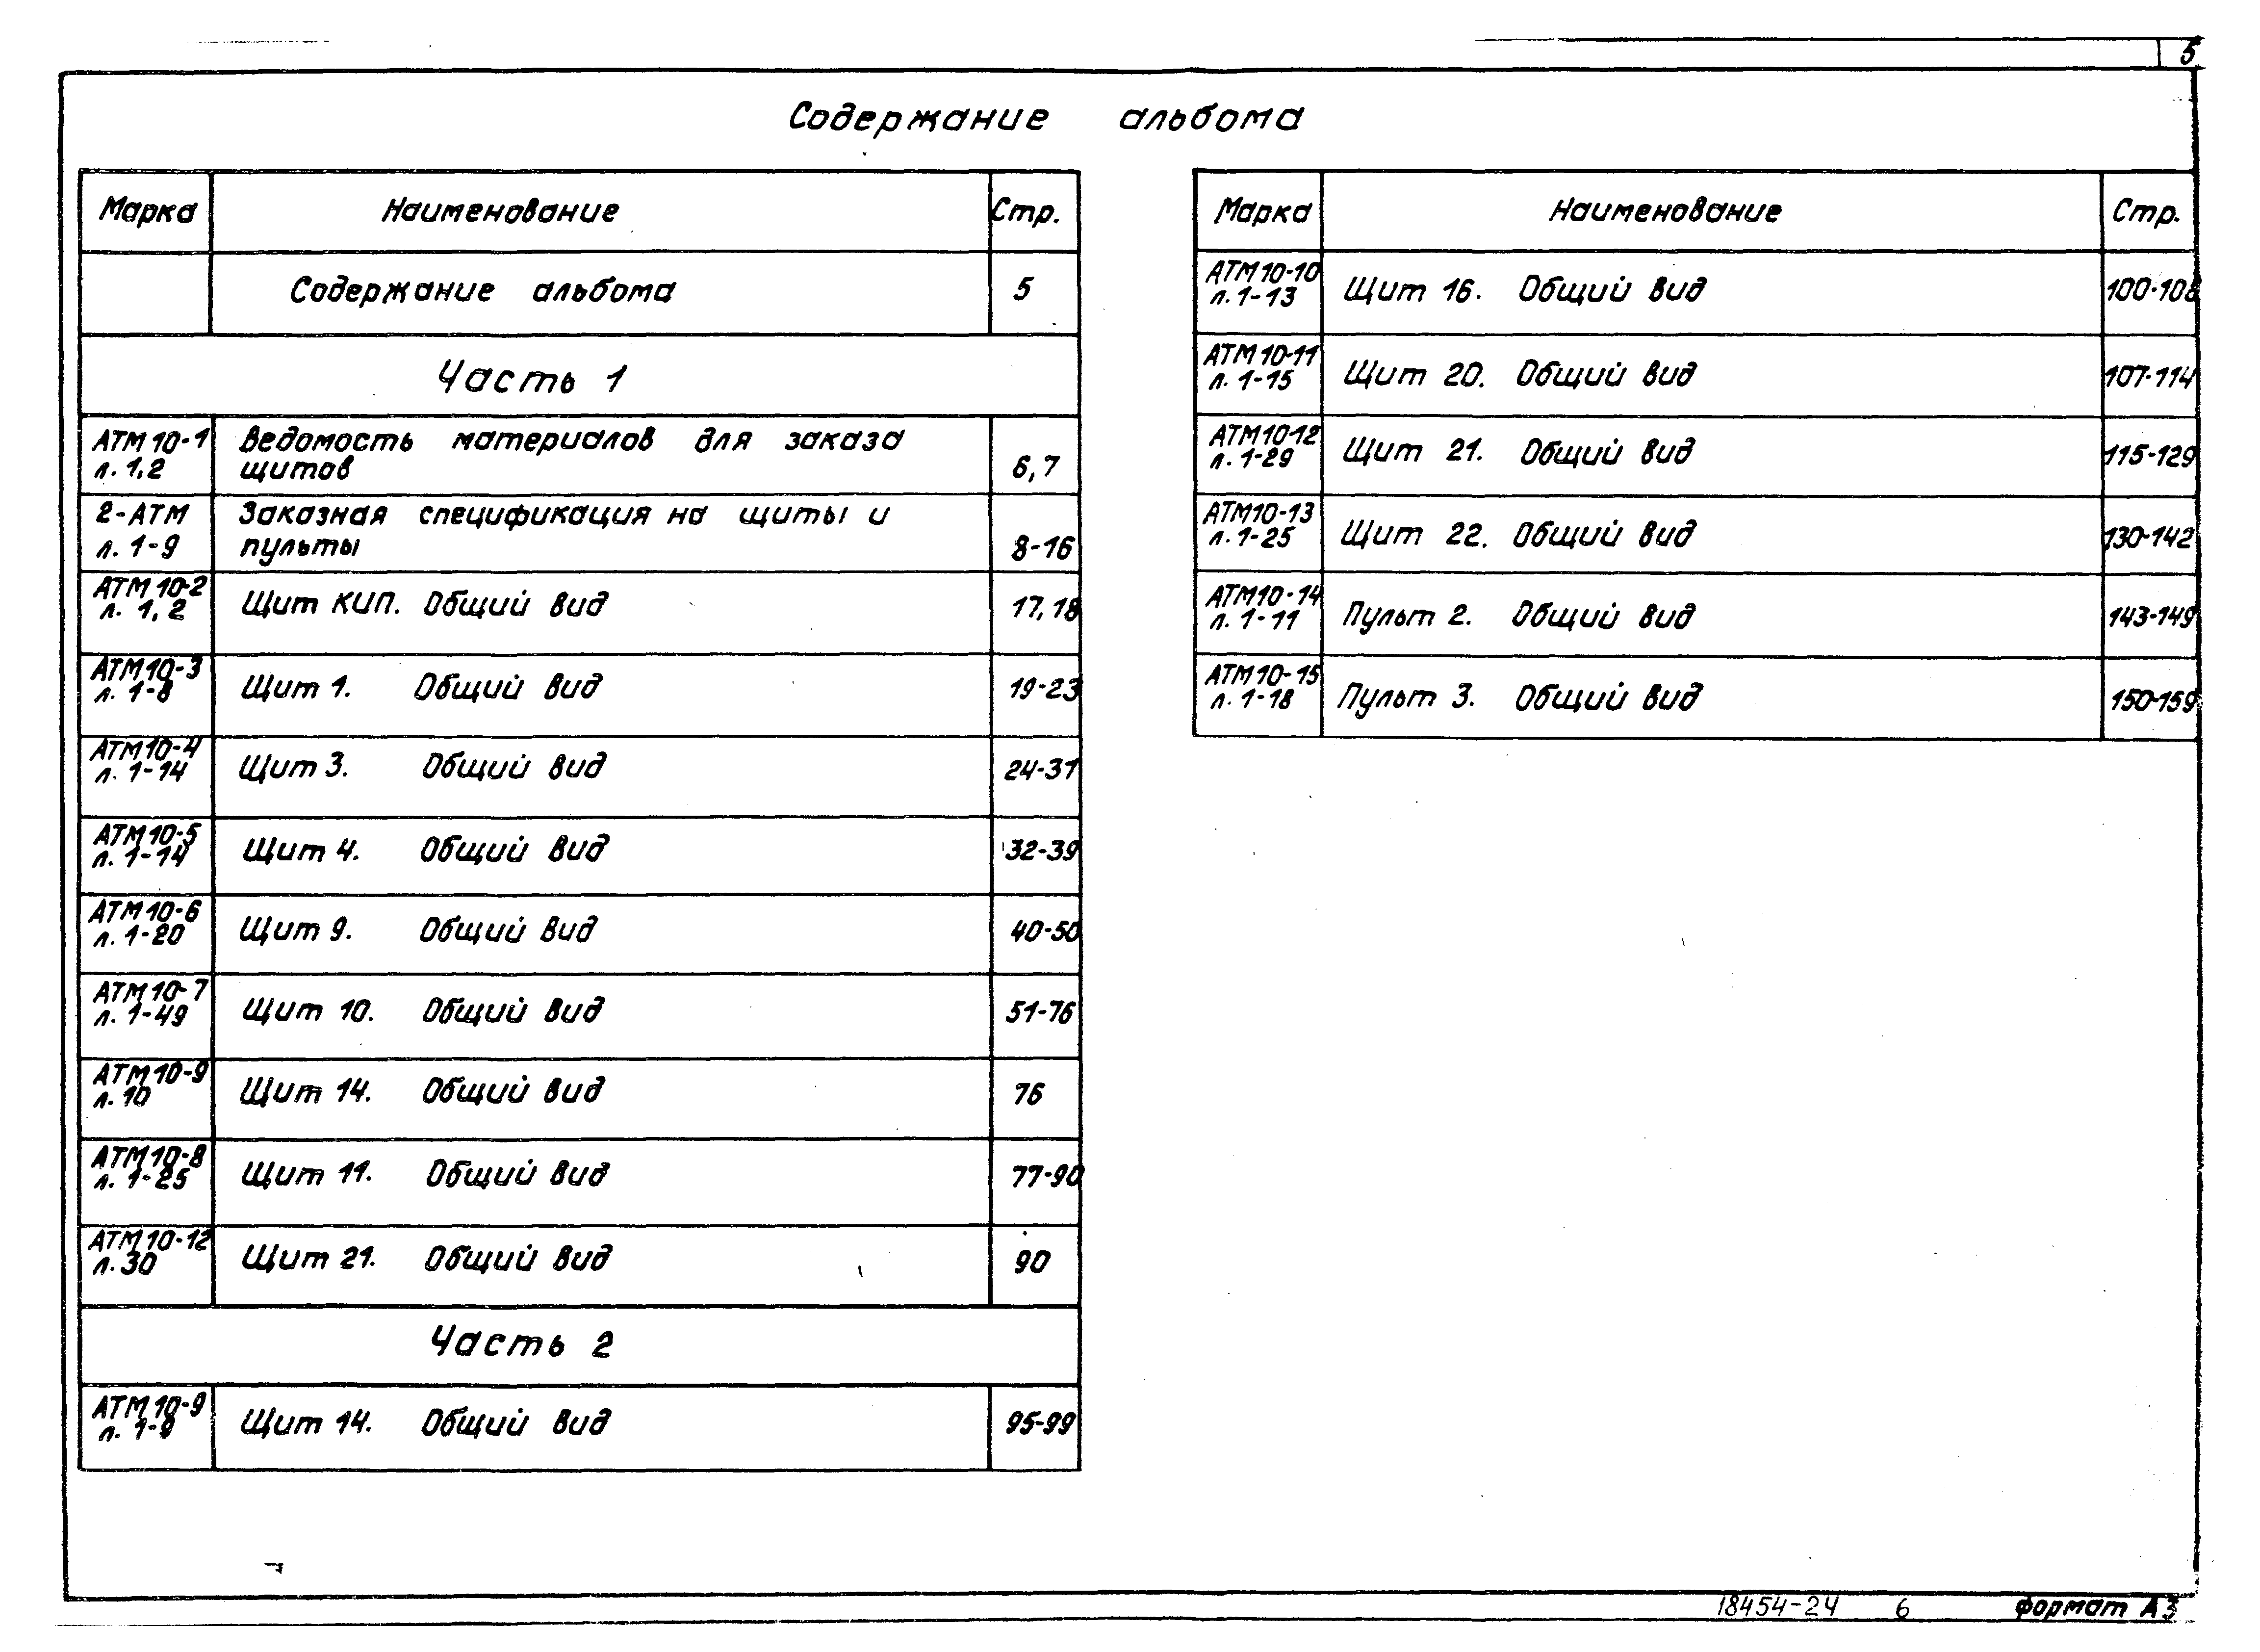 5
Содержание альбома
Марка Наименование Стр.
Содержание альбома 5
Часть 1
АТМ10-1 Ведомость материалов для заказа
л. 1,2 щитов 6,7
2-АТМ Заказная спецификация на щиты и
л. 1-9 пульты 8-16
АТМ10-2
л. 1, 2 Щит КИП. Общий вид 17,18
АТМ10-3
л. 1-8 Щит 1. Общий вид 19-23
АТМ10-4
л. 1-14 Щит 3. Общий вид 24-31
АТМ10-5
л. 1-14 Щит 4. Общий вид 32-39
АТМ10-6
л. 1-20 Щит 9. Общий вид 40-50
АТМ10-7
л. 1-49 Щит 10. Общий вид 51-76
АТМ10-9
л. 10 Щит 14. Общий вид 76
АТМ10-8
л. 1-25 Щит 11. Общий вид 77-90
АТМ10-12
л. 30 Щит 21. Общий вид 90
Часть 2
АТМ10-9
л. 1-9 Щит 14. Общий вид 95-99
Марка Наименование Стр.
АТМ10-10
л. 1-13 Щит 16. Общий вид
АТМ10-11
л. 1-15 Щит 20. Общий вид 107-114
АТМ10-12
л. 1-29 Щит 21. Общий вид 115-129
АТМ10-13
л. 1-25 Щит 22. Общий вид 130-142
АТМ10-14
л. 1-11 Пульт 2. Общий вид 143-149
АТМ10-15
л. 1-18 Пульт 3. Общий вид 150-159
18454-24 6 формат А3